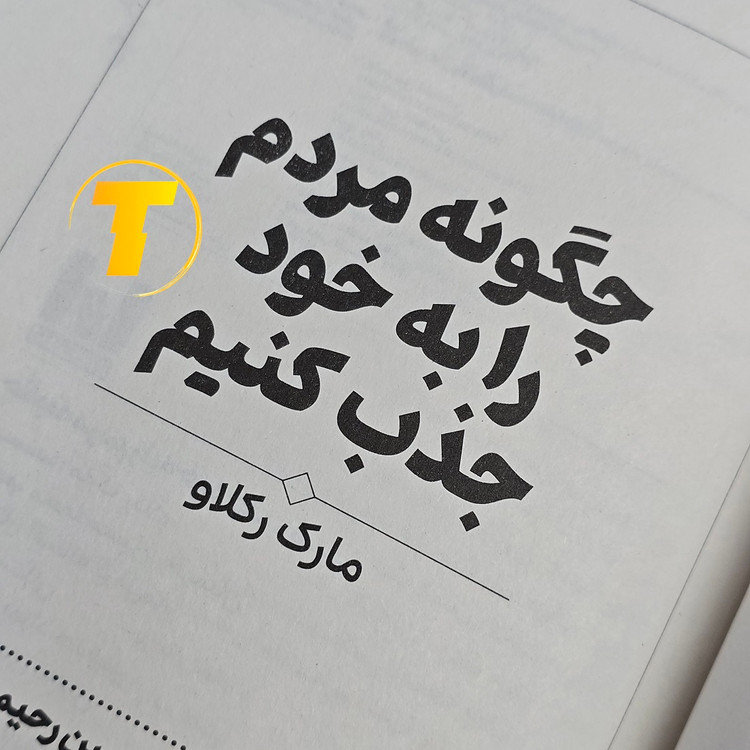 چگونه مردم
را به خود
جذب کنیم
مارک رکلاو
T
رحیم